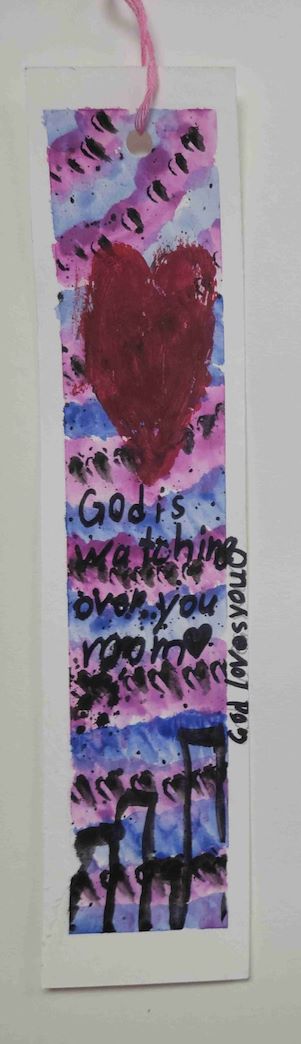 God is
watching
over you
naomi
God loves you